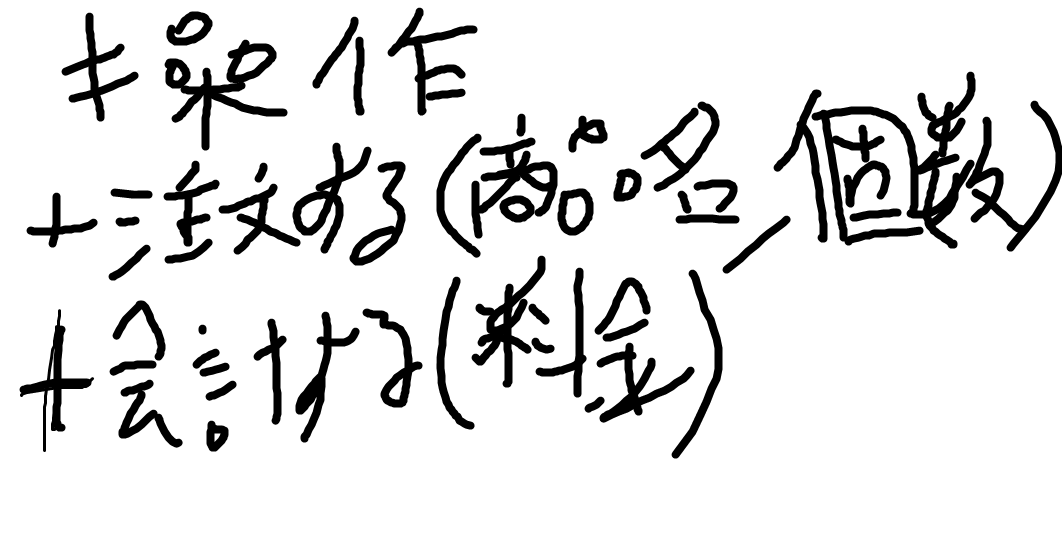 +操作
+注文する(商品名,個数)
+会計する(料金)